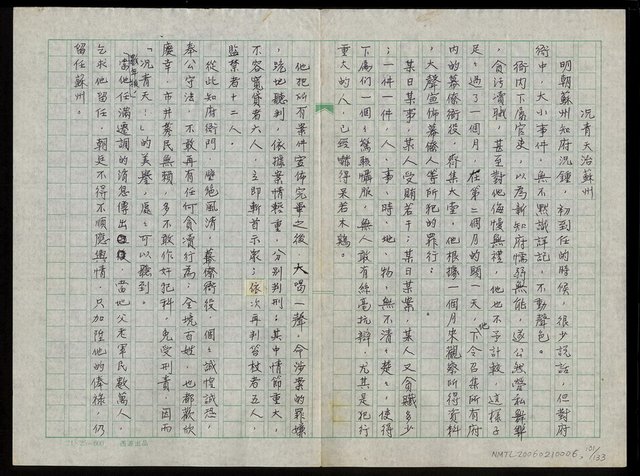 況青天治蘇州
明朝蘇州知府況鍾,初到任的時候,很少說話,但對府
衙中,大小事件,無不默識詳記,不動聲色。
衙內下屬官吏,以為新知府懦弱無能,遂公然營私舞弊
,貪污瀆職,甚至對他侮慢無禮,他也不予計較,這樣子
足足過了一個月,在第二個月的頭一天,他下令召集所有府
內的幕僚衙役,齊集大堂,他根據一個月來觀察所得資料
,大聲宣佈幕僚人等所犯的罪行:
某日某事,某人受賄若干;某日某案,某人又貪贓多少
;一件一件,人、事、時、地、物,無不清清楚楚,使得
下屬們一個個驚駭懾服,無人敢有絲毫抗辯,尤其是犯行
重大的人,已經嚇得呆若木鷄。
他把所有案件宣佈完畢之後,大喝一聲,命涉案的罪嫌
跪地聽判,依據案情輕重,分別判刑;其中情節重大,
不容寬貸者六人,立即斬首示眾;依次再判笞杖者五人,
監禁者十二人。
從此知府衙門,堂絕風清,幕僚衙役,個個誠惶誠恐,
奉公守法,不敢再有任何貪瀆行為;全境百姓,也都歡欣
慶幸,市井莠民無賴,多不敢作奸犯科,免受刑責,因而
「況青天」的美譽,處處可以聽到。
數年後,當他任滿遷調的消息傳出後,當地父老軍民數萬人,
乞求他留任,朝廷不得不順應輿情,只加陞他的俸祿,仍
留任蘇州。
21×25=600
NMTL20060210006
101/133